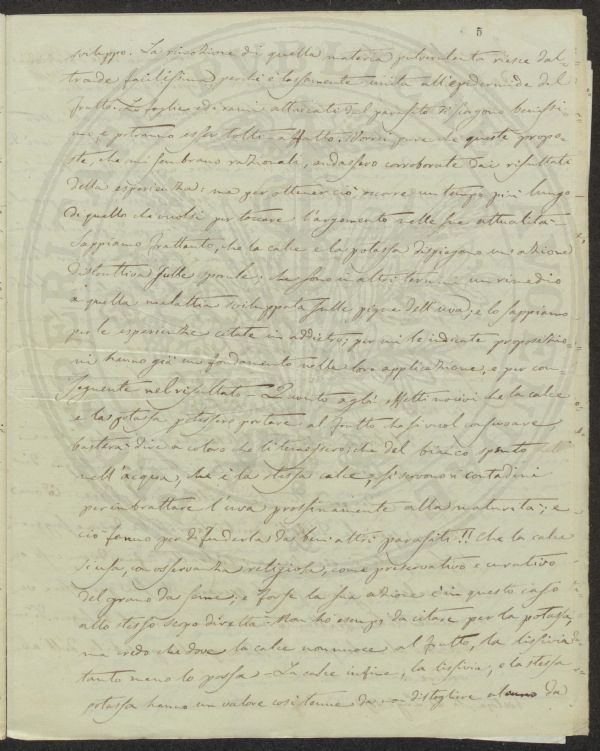 5
sviluppo. La rimozione di quella materia pulverulenta riesce dal-
tronde facilissima, perchè è lassamente unita all'epidermide del
frutto. Le foglie ed i rami attaccati dal parassito si scagono benissi-
mo, e potranno esser tolti affatto. Vorrei pure che queste propo-
ste, che mi sembrano razionali, andassero corroborate dai risultati
della esperienza: ma per ottener ciò occorre un tempo più lungo
di quello che vuolsi per toccare l'argomento nelle sue attualità.
Sappiamo frattanto, che la calce e la potassa dispiegano un'azione
distruttiva sulle sporule; che sono in altri termini un rimedio
a quella malattia sviluppata sulle pigne dell'uva; e lo sappiamo
per le esperienze citate in addietro; per cui le indicate proposizio-
ni hanno già un fondamento nella loro applicazione, e per con-
seguente nel risultato - Quanto agli effetti nocivi che la calce
e la potassa potessero portare al frutto che si vuol conservare
basterà dire a coloro che li temessero, che del bianco spento
nell'acqua, che è la stessa calce, si servono i contadini
per imbrattare l'uva prossimamente alla maturità; e
ciò fanno per difenderla da ben altri parassiti!! Che la calce
si usa, con osservanza religiosa, come preservativo e curativo
del grano da seme, e forse la sua azione è in questo caso
allo stesso scopo diretta - Non ho esempj da citare per la potassa,
ma credo che dove la calce non nuoce al frutto, la lissivia
tanto meno lo possa - La calce infine, la lissivia, e la stessa
potassa hanno un valore così tenue da non distogliere alcuno da